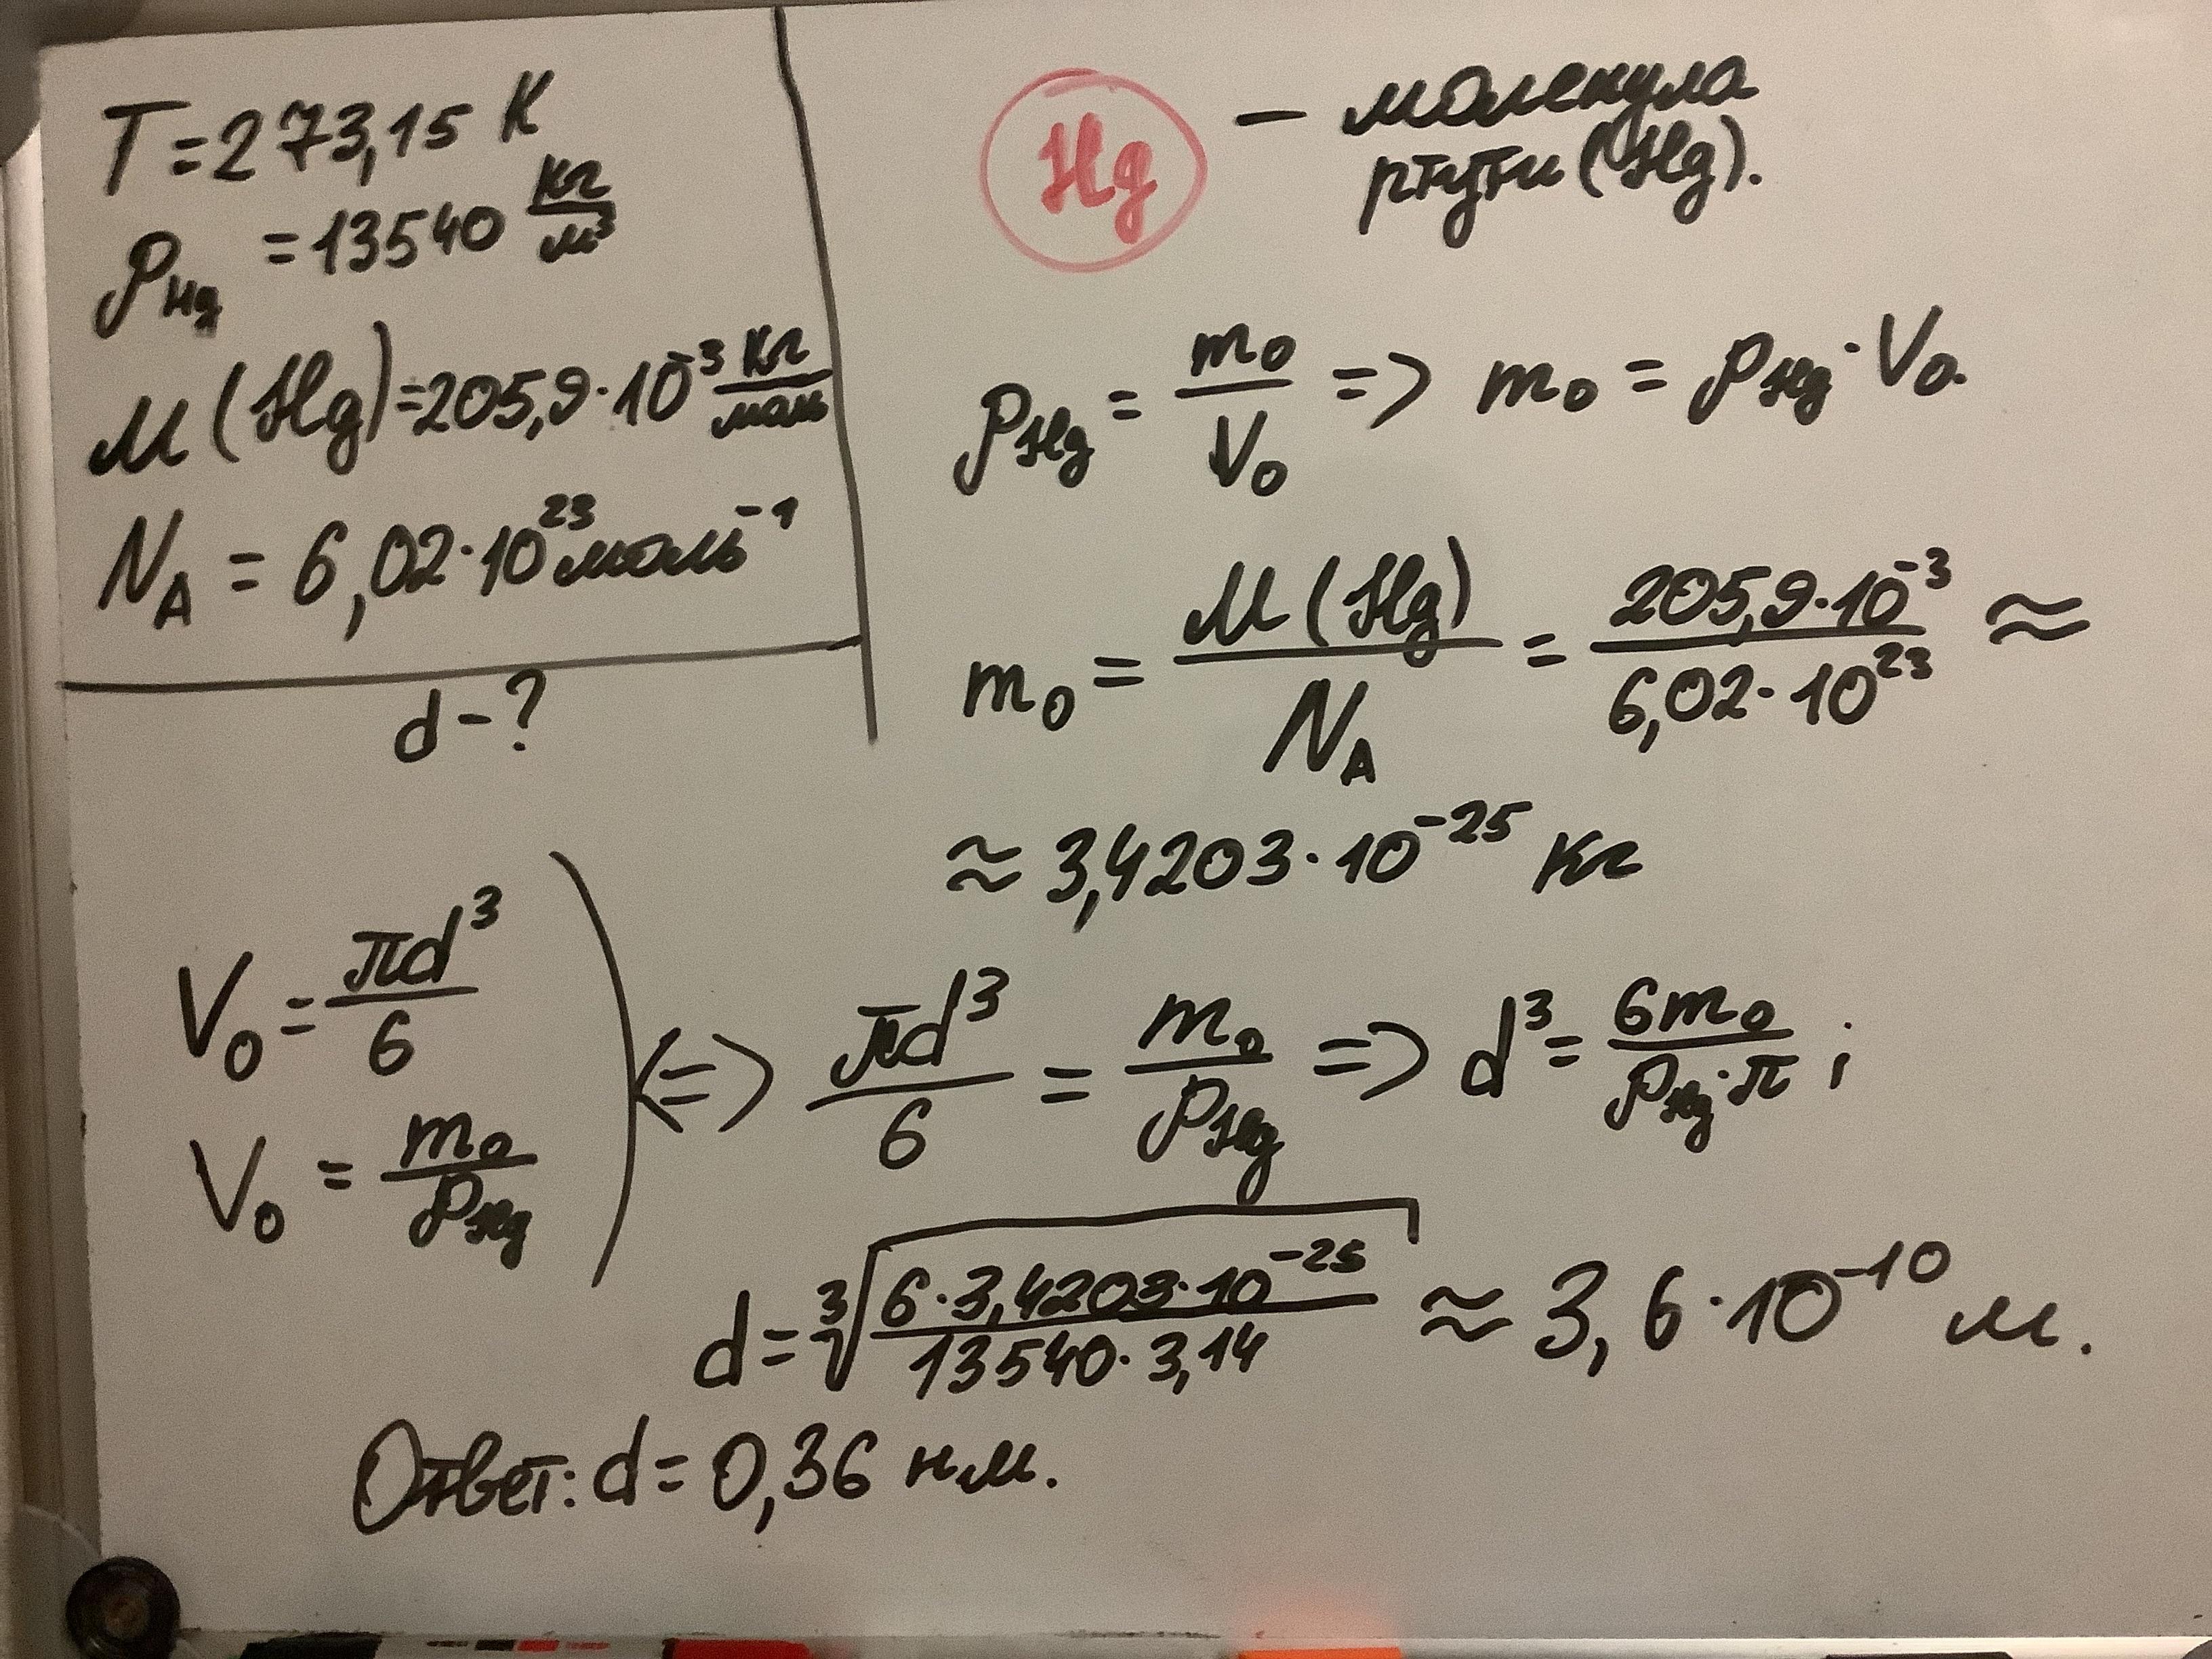 T = 273,15 К
ρHg = 13540 кг/м³
M(Hg) = 205,9·10⁻³ кг/моль
N_A = 6,02·10²³ моль⁻¹
d - ?
Hg — молекула
ртути (Hg).
ρHg = m₀/V₀ => m₀ = ρHg · V₀.
m₀ = M(Hg)/N_A = 205,9·10⁻³/6,02·10²³ ≈
≈ 3,4203·10⁻²⁵ кг
V₀ = πd³/6
V₀ = m₀/ρHg
) <=> πd³/6 = m₀/ρHg => d³ = 6m₀/ρHg·π ;
d = ∛(6·3,4203·10⁻²⁵/13540·3,14) ≈ 3,6·10⁻¹⁰ м.
Ответ: d = 0,36 нм.